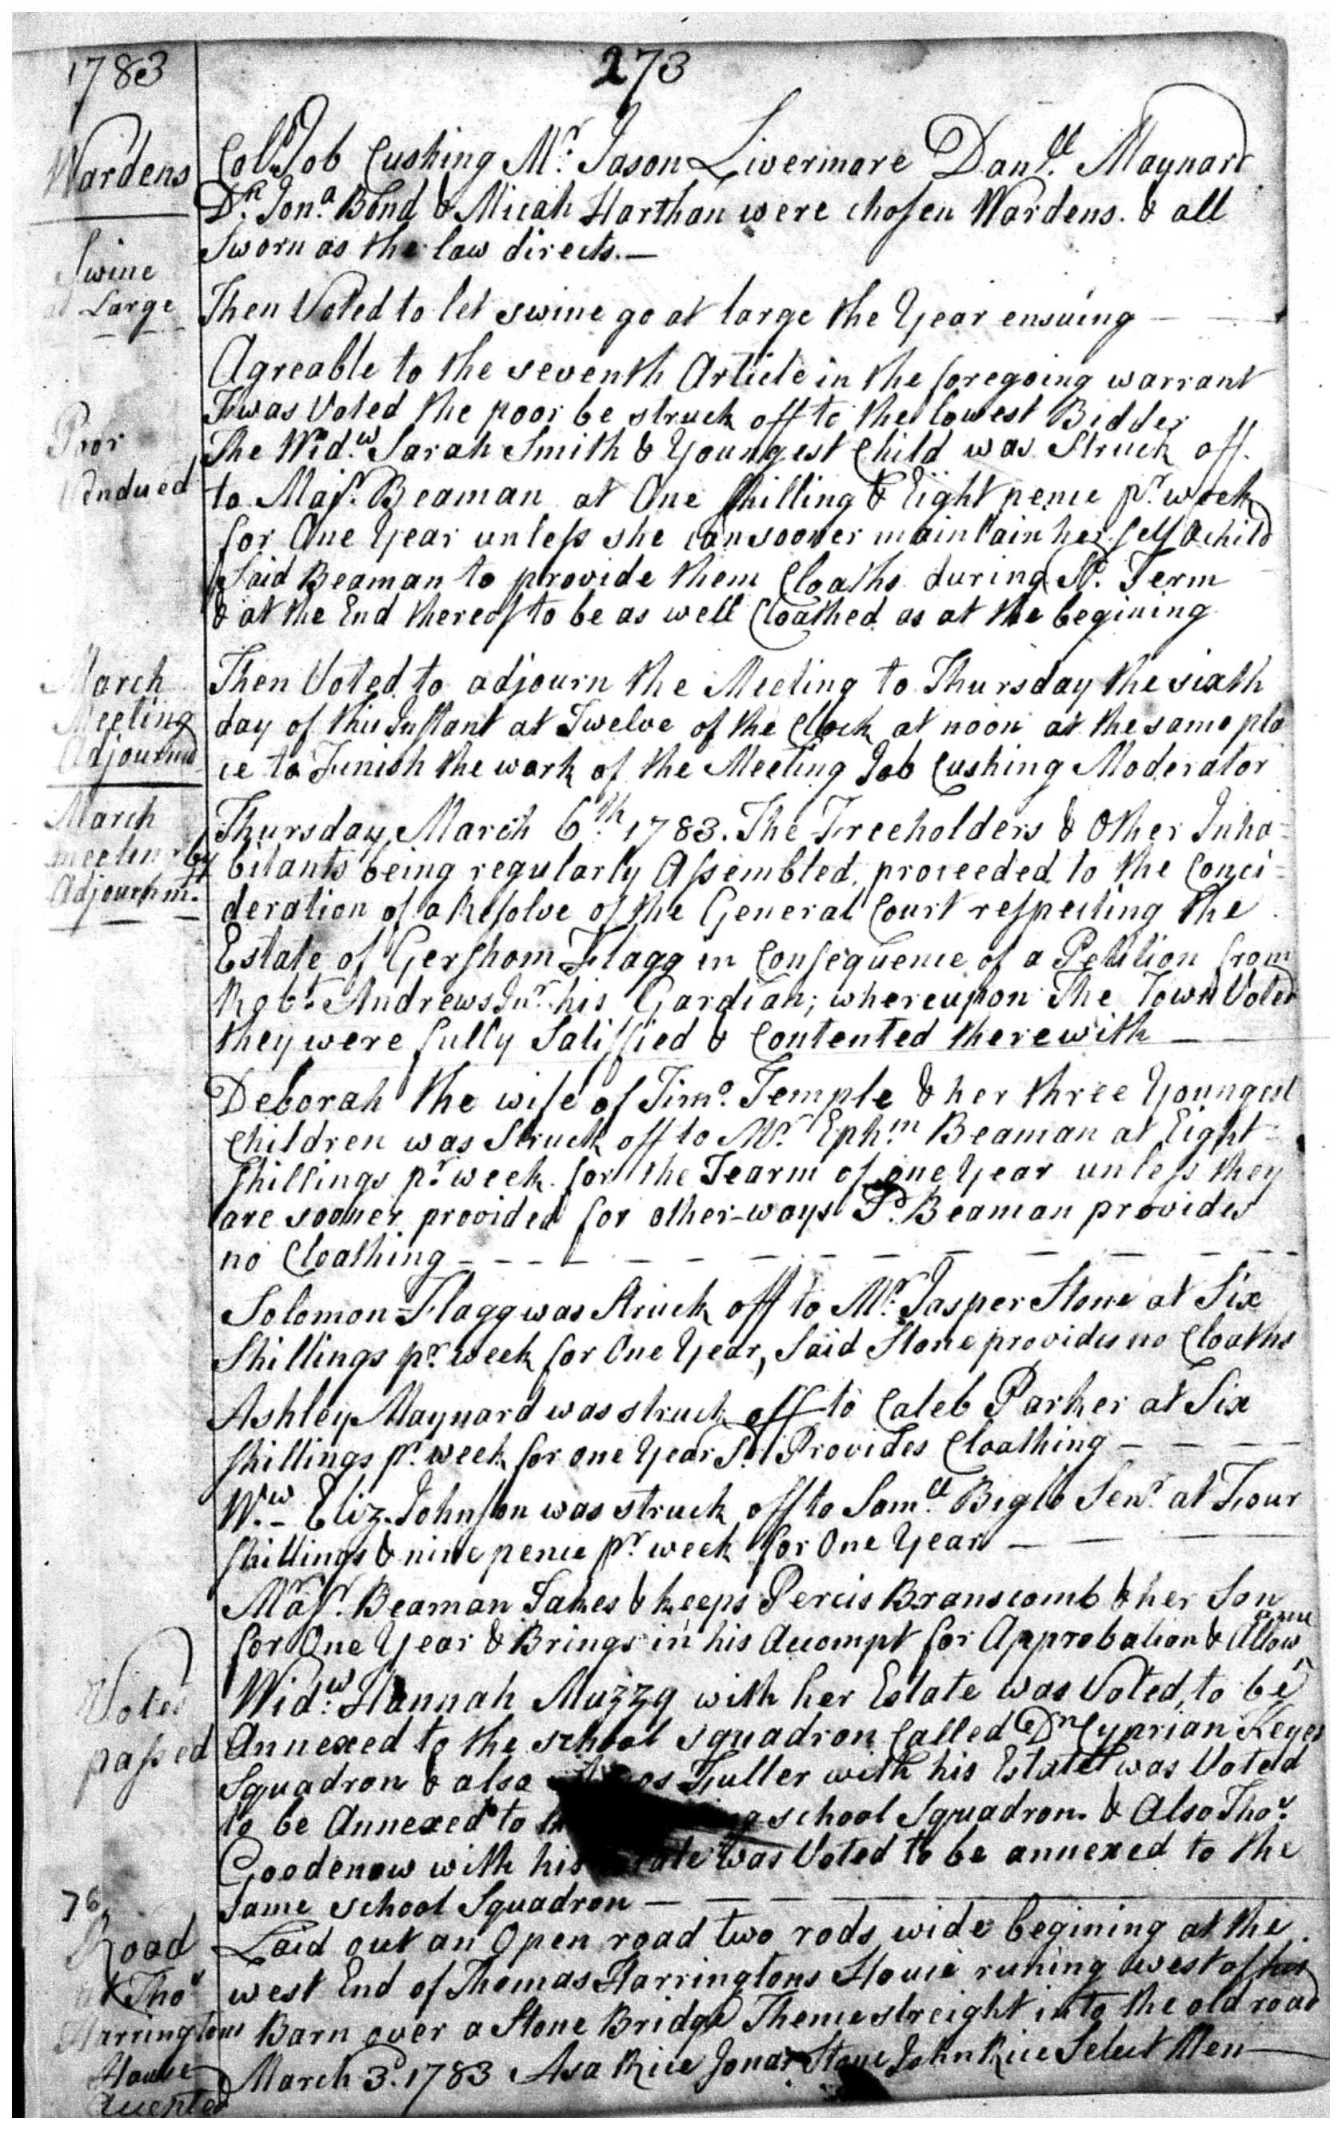 1783
273
Wardens
Coll. Job Cushing Mr. Jason Livermore Danll. Maynard
Dn. Jona. Bond & Micah Harthan were chosen Wardens. & all
sworn as the law directs.—
Swine
at Large
Then Voted to let swine go at large the Year ensuing — —
Agreable to the seventh Article in the foregoing warrant
Twas Voted the poor be struck off to the lowest Bidder
Poor
Vendued
The Widw. Sarah Smith & Youngest Child was Struck off.
to Majr. Beaman at One Shilling & Eight pence pr. week
for One Year unless she can sooner maintain her self & child
Said Beaman to provide them Cloaths during Sd. Term
& at the End thereof to be as well Cloathed as at the begining
March
Meeting
Adjournd
Then Voted to adjourn the Meeting to Thursday the sixth
day of this Instant at Twelve of the Clock at noon at the same pla
ce to Finish the work of the Meeting Job Cushing Moderator
March
meeting by
Adjournmt.
Thursday March 6th. 1783. The Freeholders & Other Inha=
bitants being regularly Assembled, proceeded to the Conci=
deration of a Resolve of the General Court respecting the
Estate of Gershom Flagg in Consequence of a Petition from
Robt. Andrews Junr. his Gardian; whereupon The Town Voted
they were fully Satisfied & Contented therewith — —
Deborah the wife of Timo. Temple & her three Youngest
Children was Struck off to Mr. Ephm. Beaman at Eight=
Shillings pr. week for the Tearm of one Year unless they
are sooner provided for other-ways Sd. Beaman provides
no Cloathing — — — — — — — — — —
Solomon Flagg was Struck off to Mr. Jasper Stone at Six
Shillings pr. week for One Year, Said Stone provides no Cloaths
Ashley Maynard was struck off to Caleb Parker at Six
shillings pr. week for one Year Sd. P Provides Cloathing — — — —
Ww. Eliz. Johnson was struck off to Samll. Biglo Senr. at Four
shillings & nine pence pr. week for One Year — — —
Majr. Beaman Takes & keeps Percis Branscomb & her Son
for One Year & Brings in his Accompt for Approbation & Allow
ance
Votes
passed
Widw. Hannah Muzzy with her Estate was Voted, to be
Annexed to the school squadron Called Dn. Cyprian Keyes
Squadron & also Fuller with his Estate was Voted
to be Annexed to school Squadron. & Also Thos.
Goodenow with his was Voted to be annexed to the
same school Squadron — — — — —
76
Road
at Thos.
Harringtons
House
Accepted
Laid out an Open road two rods wide begining at the
west End of Thomas Harringtons House runing west of his
Barn over a Stone Bridge Thence streight into the old road
March 3d. 1783 Asa Rice Jonas Stone John Rice Select Men